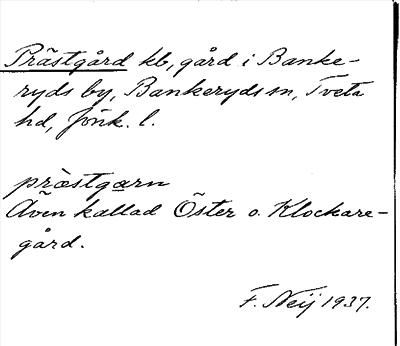 Prästgård kb, gård i Banke-
ryds by, Bankeryds sn, Tveta
hd, Jönk. l.
præstgarn
Även kallad Öster o. Klockare-
gård.
F. Neij 1937.